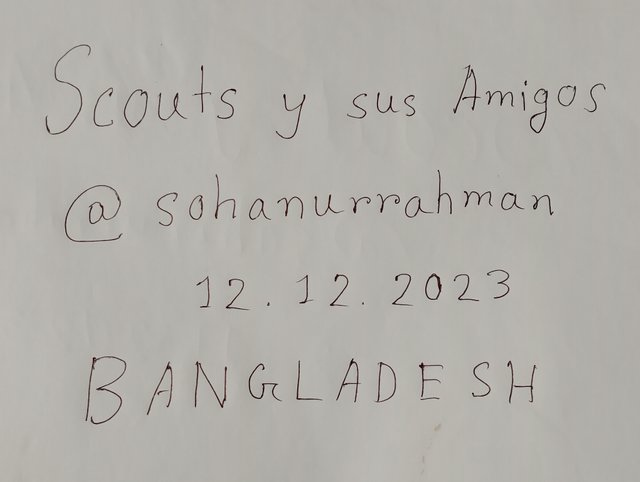 Scouts y sus Amigos
@sohanurrahman
12.12.2023
BANGLADESH